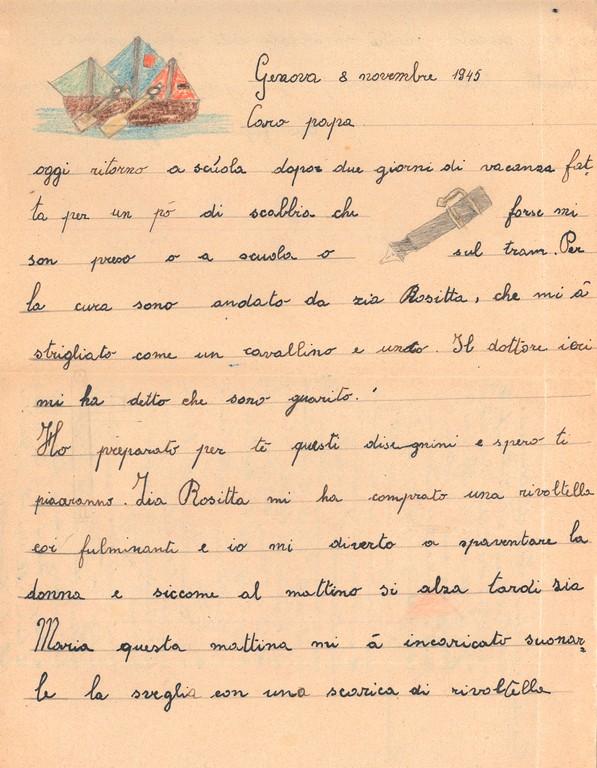 Genova 8 novembre 1945
Caro papa
oggi ritorno a scuola dopo due giorni di vacanza fat-
ta per un pó di scabbia che forse mi
son preso o a scuola o sul tram. Per
la cura sono andato da zia Rositta, che mi á
strigliato come un cavallino e unto. Il dottore ieri
mi ha detto che sono guarito.
Ho preparato per te questi disegnini e spero ti
piaceranno. Zia Rositta mi ha comprato una rivoltella
coi fulminanti e io mi diverto a spaventare la
donna e siccome al mattino si alza tardi zia
Maria questa mattina mi á incaricato suonar=
le la sveglia con una scarica di rivoltella